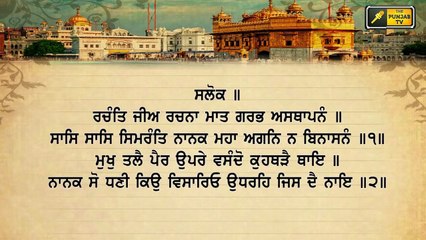 THE
PUNJAB
TV
ਸਲੋਕ ॥
ਰਚੰਤਿ ਜੀਅ ਰਚਨਾ ਮਾਤ ਗਰਭ ਅਸਥਾਪਨੰ ॥
ਸਾਸਿ ਸਾਸਿ ਸਿਮਰੰਤਿ ਨਾਨਕ ਮਹਾ ਅਗਨਿ ਨ ਬਿਨਾਸਨੰ ॥੧॥
ਮੁਖੁ ਤਲੈ ਪੈਰ ਉਪਰੇ ਵਸੰਦੋ ਕੁਹਥੜੈ ਥਾਇ ॥
ਨਾਨਕ ਸੋ ਧਣੀ ਕਿਉ ਵਿਸਾਰਿਓ ਉਧਰਹਿ ਜਿਸ ਦੈ ਨਾਇ ॥੨॥